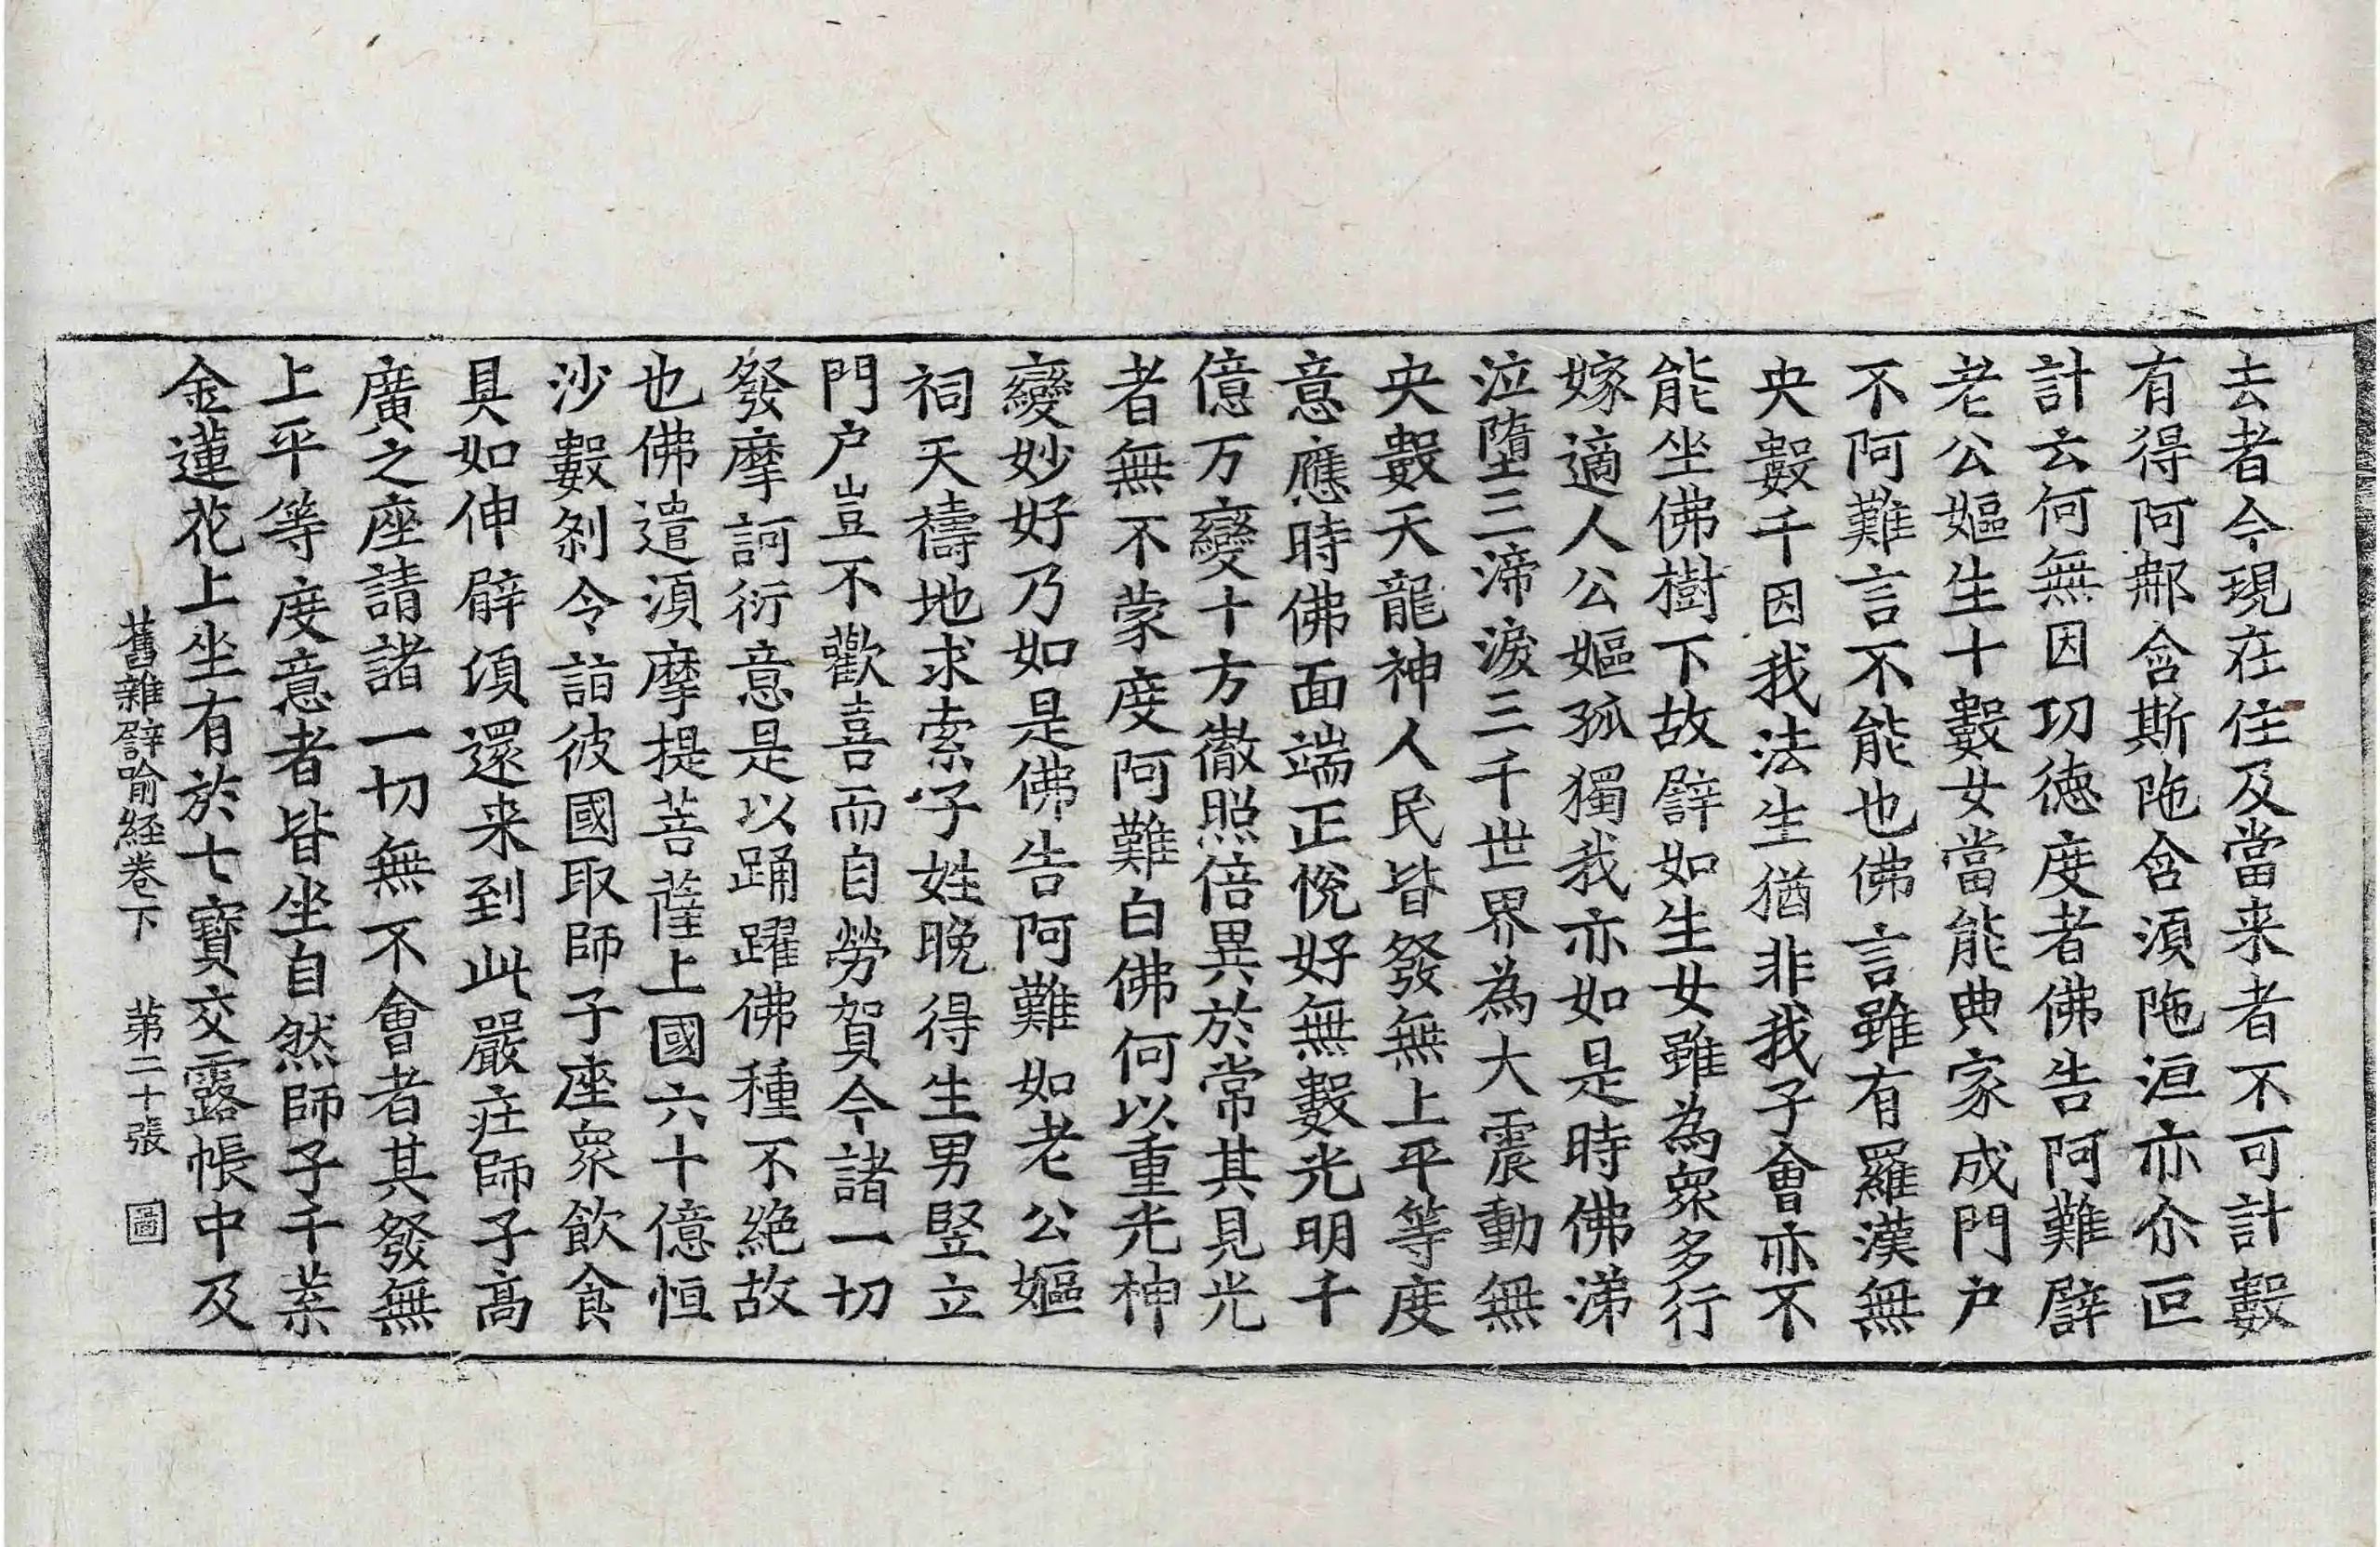 去者今現在住及當来者不可計數
有得阿那含斯陁含須陁洹亦尒叵
計云何無因功德度者佛告阿難譬
老公嫗生十數女當能典家成門户
不阿難言不能也佛言雖有羅漢無
央數千因我法生猶非我子會亦不
能坐佛樹下故譬如生女雖為衆多行
嫁適人公嫗孤獨我亦如是時佛涕
泣墮三渧淚三千世界為大震動無
央數天龍神人民皆發無上平等度
意應時佛面端正恱好無數光明千
億万變十方徹照倍異於常其見光
者無不蒙度阿難白佛何以重光神
變妙好乃如是佛告阿難如老公嫗
祠天禱地求索子姓晚得生男竪立
門户豈不歡喜而自勞賀今諸一切
發摩訶衍意是以踊躍佛種不絶故
也佛遣須摩提菩薩上國六十億恒
沙數刹令詣彼國取師子座衆飲食
具如伸臂須還来到此嚴莊師子高
廣之座請諸一切無不會者其發無
上平等度意者皆坐自然師子千葉
金蓮花上坐有於七寶交露帳中及
舊雜譬喻経卷下 第二十張 圖